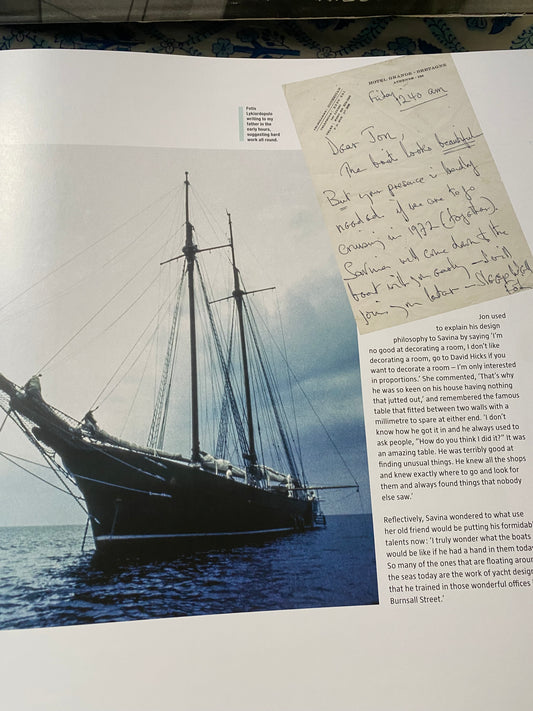 Fotis
Lykiardopulo
writing to my
father in the
early hours,
suggesting hard
work all round.
HOTEL GRANDE - BRETAGNE
Friday
1240 am
Dear Jon,
The boat looks beautiful
But your presence is badly
needed if we are to go
cruising in 1972 (together).
Savina will come down to the
boat with you
I will
join you later – Sleep well
Jon used
to explain his design
philosophy to Savina by saying ‘I’m
no good at decorating a room, I don’t like
decorating a room, go to David Hicks if you
want to decorate a room – I’m only interested
in proportions.’ She commented, ‘That’s why
he was so keen on his house having nothing
that jutted out,’ and remembered the famous
table that fitted between two walls with a
millimetre to spare at either end. ‘I don’t
know how he got it in and he always used to
ask people, “How do you think I did it?” It was
an amazing table. He was terribly good at
finding unusual things. He knew all the shops
and knew exactly where to go and look for
them and always found things that nobody
else saw.’
Reflectively, Savina wondered to what use
her old friend would be putting his formidab
talents now: ‘I truly wonder what the boats
would be like if he had a hand in them toda
So many of the ones that are floating aroun
the seas today are the work of yacht design
that he trained in those wonderful offices
Burnsall Street.’